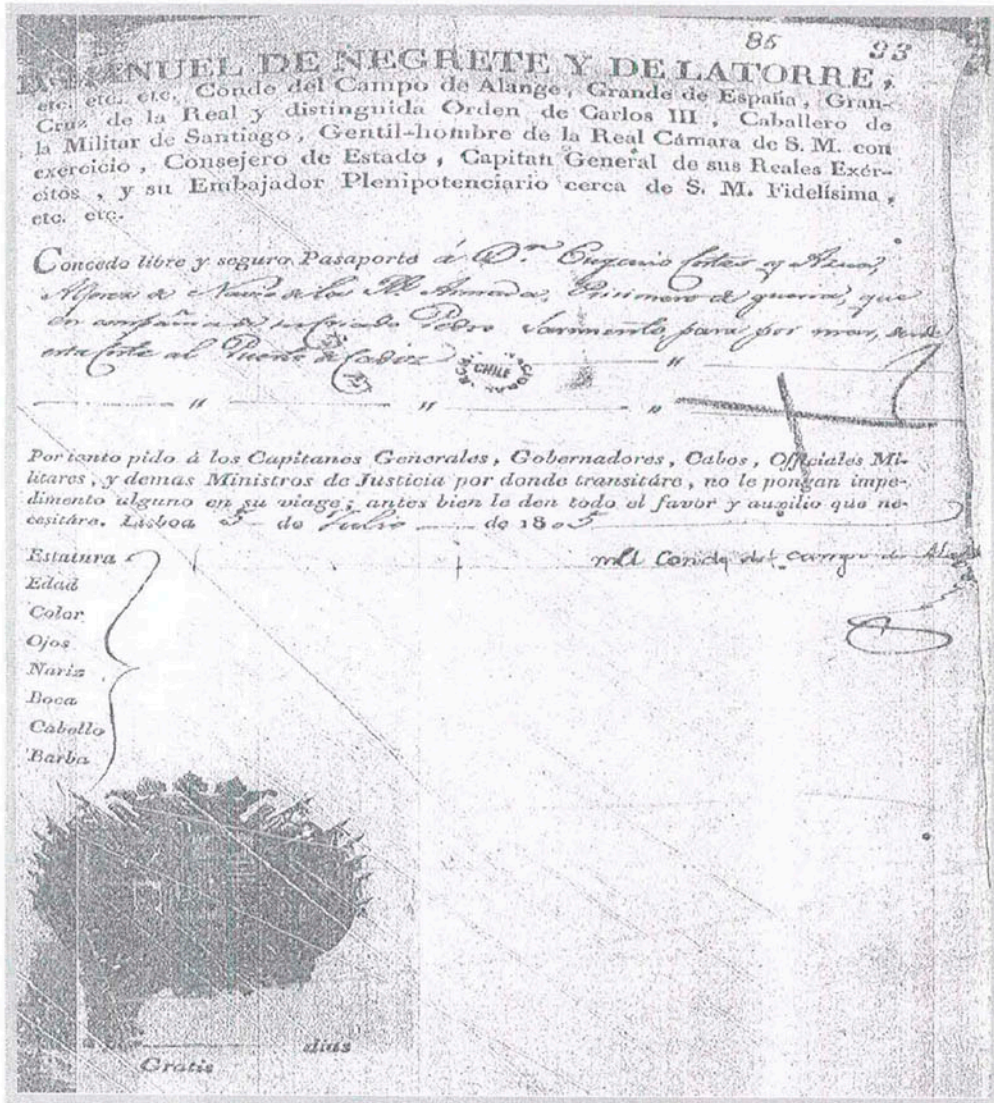 85 93
MANUEL DE NEGRETE Y DE LATORRE,
etc. etc. etc. Conde del Campo de Alange, Grande de España, Gran-
Cruz de la Real y distinguida Orden de Carlos III, Caballero de
la Militar de Santiago, Gentil-hombre de la Real Cámara de S. M. con
exercicio, Consejero de Estado, Capitan General de sus Reales Exér-
citos, y su Embajador Plenipotenciario cerca de S. M. Fidelísima,
etc. etc.
Concedo libre y seguro Pasaporte á Dn. Eugenio Cortes y Azua,
Alferez de Navio de la Rl. Armada, Prisionero de guerra, que
en compañia de su criado Pedro Sarmiento, pasa por mar, desde
esta Corte al Puerto de Cadiz
CHILE
Por tanto pido á los Capitanes Generales, Gobernadores, Cabos, Officiales Mi-
litares, y demas Ministros de Justicia por donde transitáre, no le pongan impe-
dimento alguno en su viage; antes bien le den todo el favor y auxilio que ne-
cesitáre. Lisboa 5 de Julio de 1805
el Conde del campo de Alange
Estatura
Edad
Color
Ojos
Nariz
Boca
Cabello
Barba
dias
Gratis